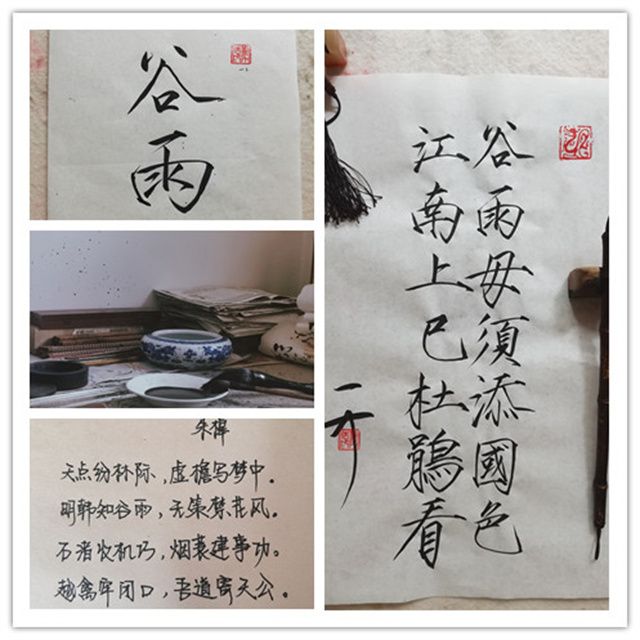 谷雨
谷雨毋須添國色
江南上巳杜鵑看
朱槔
天点纷林际，虚檐写梦中。
明朝知谷雨，无策禁花风。
石渚收机巧，烟蓑建事功。
越禽牢闭口，吾道寄天公。